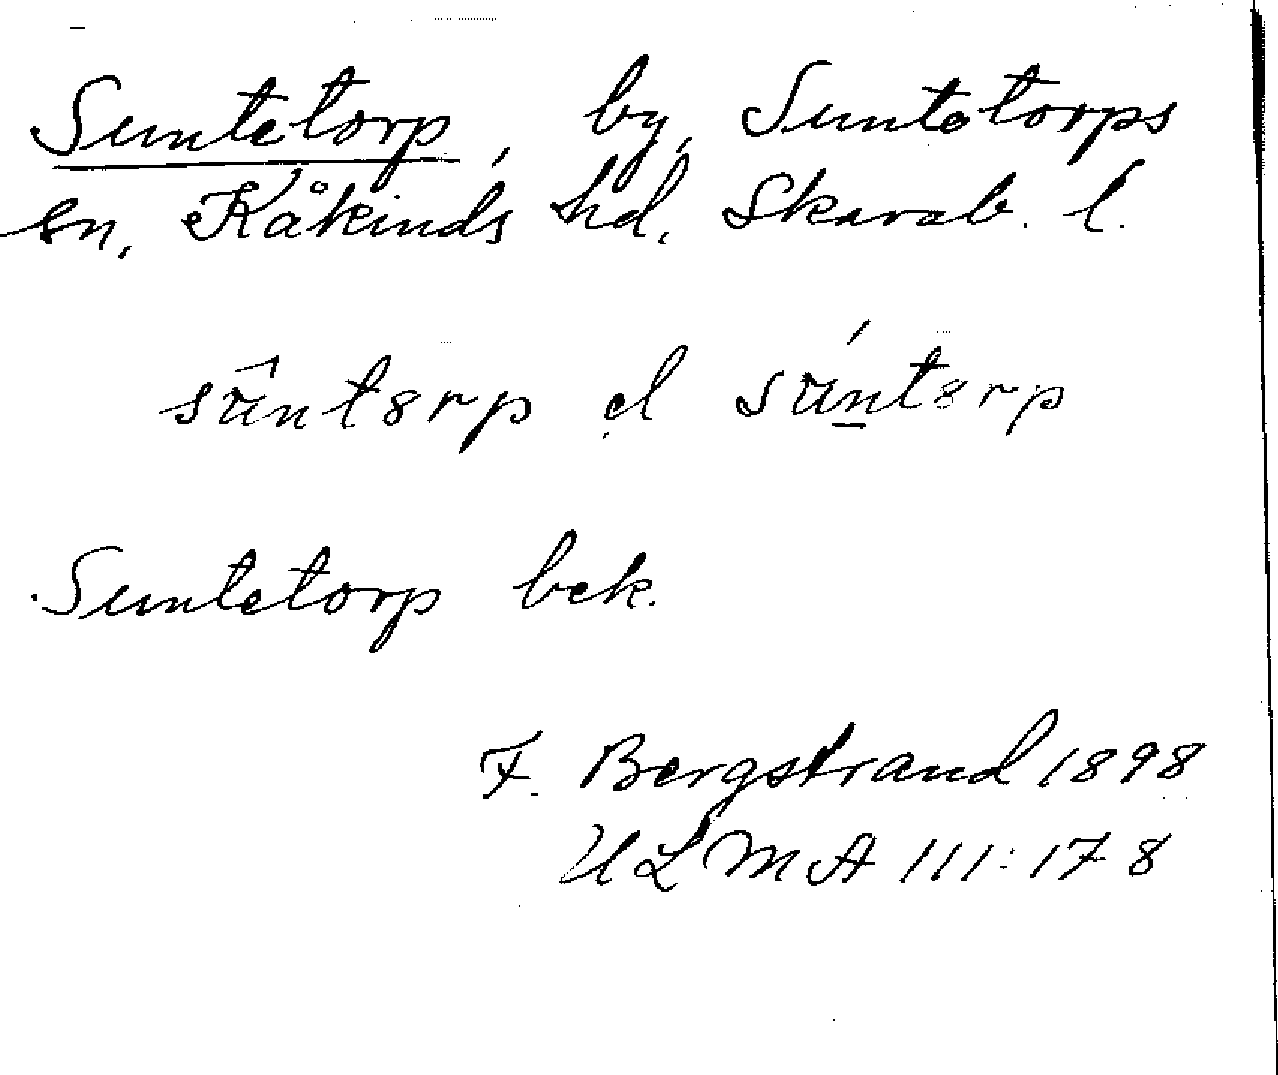 Suntetorp, by, Suntetorps
sn, Kåkinds hd, Skarab. l.
sûntorp el súntorp
Suntetorp bek.
F. Bergstrand 1898
ULMA 111:178